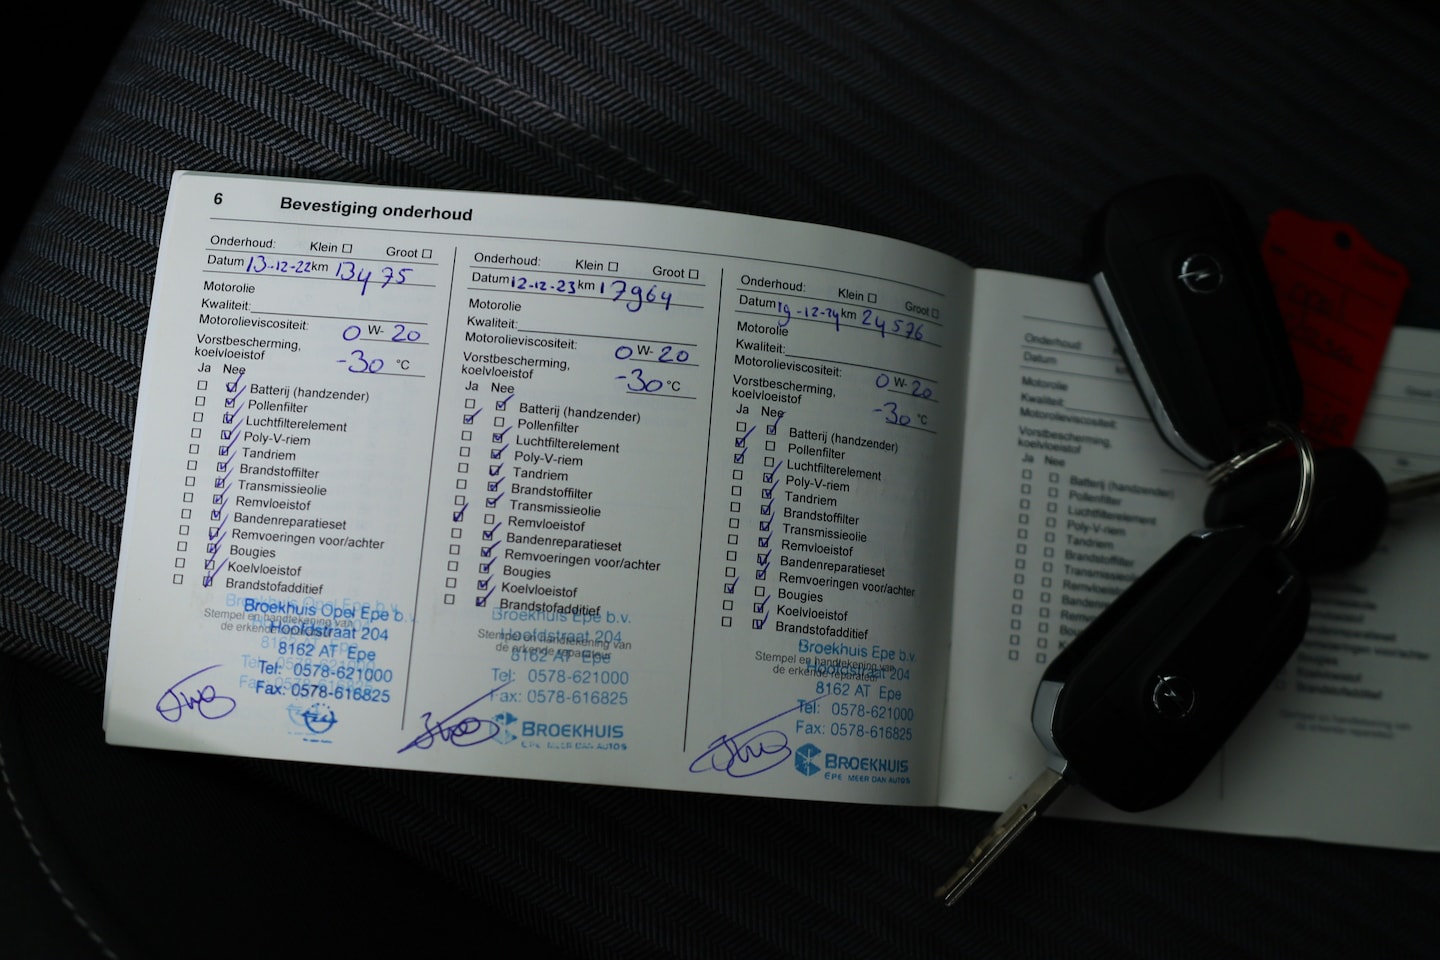 6 Bevestiging onderhoud
Onderhoud: Klein Groot
Datum 13-12-22 km 13475
Motorolie
Kwaliteit:
Motorolieviscositeit: 0 W- 20
Vorstbescherming,
koelvloeistof -30 °C
Ja Nee
Batterij (handzender)
Pollenfilter
Luchtfilterelement
Poly-V-riem
Tandriem
Brandstoffilter
Transmissieolie
Remvloeistof
Bandenreparatieset
Remvoeringen voor/achter
Bougies
Koelvloeistof
Brandstofadditief
Stempel en handtekening van
de erkende
Broekhuis Opel Epe b.v.
Hoofdstraat 204
8162 AT Epe
Tel: 0578-621000
Fax: 0578-616825
Onderhoud: Klein Groot
Datum 12-12-23 km 17964
Motorolie
Kwaliteit:
Motorolieviscositeit: 0 W- 20
Vorstbescherming,
koelvloeistof -30 °C
Ja Nee
Batterij (handzender)
Pollenfilter
Luchtfilterelement
Poly-V-riem
Tandriem
Brandstoffilter
Transmissieolie
Remvloeistof
Bandenreparatieset
Remvoeringen voor/achter
Bougies
Koelvloeistof
Brandstofadditief
Broekhuis Epe b.v.
Stempel en handtekening van
Hoofdstraat 204
de erkende reparateur
8162 AT Epe
Tel: 0578-621000
Fax: 0578-616825
BROEKHUIS
EPE MEER DAN AUTOS
Onderhoud: Klein Groot
Datum 19-12-24 km 24576
Motorolie
Kwaliteit:
Motorolieviscositeit: 0 W- 20
Vorstbescherming,
koelvloeistof -30 °C
Ja Nee
Batterij (handzender)
Pollenfilter
Luchtfilterelement
Poly-V-riem
Tandriem
Brandstoffilter
Transmissieolie
Remvloeistof
Bandenreparatieset
Remvoeringen voor/achter
Bougies
Koelvloeistof
Brandstofadditief
Broekhuis Epe b.v.
Stempel en handtekening van
Hoofdstraat 204
de erkende reparateur
8162 AT Epe
Tel: 0578-621000
Fax: 0578-616825
BROEKHUIS
EPE MEER DAN AUTOS
Onderhoud:
Datum
Motorolie
Kwaliteit:
Motorolieviscositeit:
Vorstbescherming,
koelvloeistof
Ja Nee
Batterij (handzender)
Pollenfilter
Luchtfilterelement
Poly-V-riem
Tandriem
Brandstoffilter